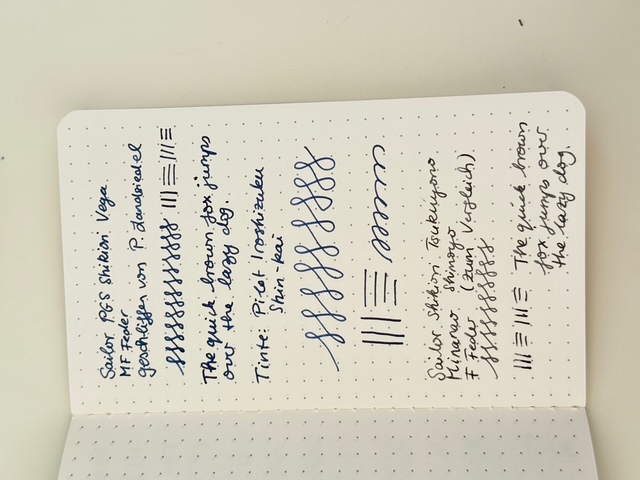 Sailor PGS Shikiori Vega
MF Feder
geschliffen von P. Zandspiedel
The quick brown fox jumps
over the lazy dog.
Tinte: Pilot Iroshizuku
Shin-kai
Sailor Shikiori Tsukuyono
Minamo Shimoyo
F Feder (zum Vergleich)
The quick brown
fox jumps over
the lazy dog.